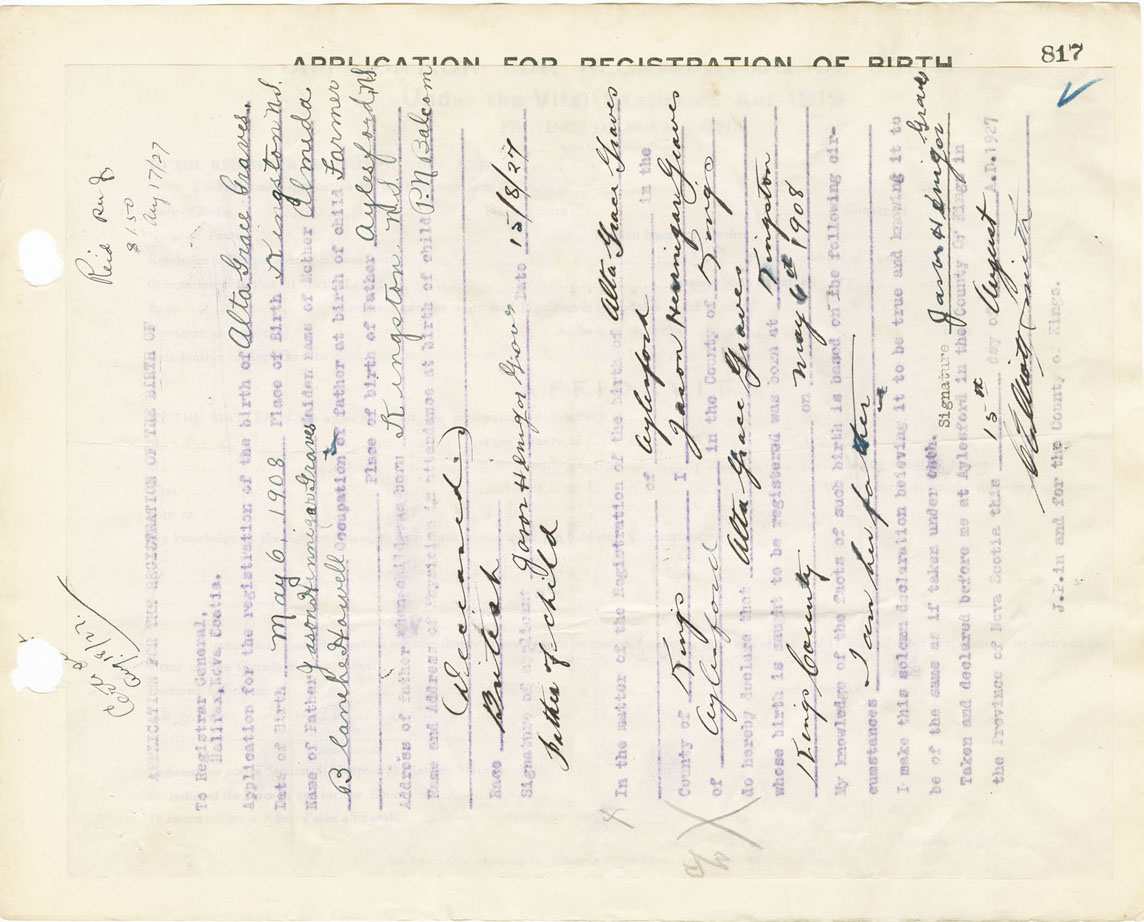 817
APPLICATION FOR REGISTRATION OF BIRTH
Under the Vital Statistics Act 1919
Reid
$1.50
Aug 17/27
APPLICATION FOR THE REGISTRATION OF THE BIRTH OF
To Registrar General,
Halifax, Nova Scotia.
Application for the registration of the birth of Alta Grace Graves.
Date of Birth May 6 1908 Place of Birth Kingston N.S.
Name of Father Jason Hennigar Graves Maiden name of mother Almeda
Blanche Howell Occupation of father at birth of child Farmer
Place of birth of Father Aylesford, N.S.
Address of father when child was born Kingston N.S.
Name and Address of Physician in attendance at birth of child P. N Balcom
(Deceased.)
Race British
Signature of applicant Jason Henigar Graves Date 15/8/27
Father of child
In the matter of the Registration of the birth of Alta Grace Graves
of Aylesford in the
County of Kings I Jason Hennigar Graves
of Aylesford in the County of Kings
do hereby declare that Alta Grace Graves
whose birth is sought to be registered was born at Kingston
Kings County on May 6th 1908
My knowledge of the facts of such birth is based on the following cir-
cumstances I am her father
I make this solemn declaration believing it to be true and knowing it to
be of the same as if taken under oath.
Signature Jason Henigar Graves
Taken and declared before me at Aylesford in the County Of Kings in
the Province of Nova Scotia this 15th day of August A.D.1927
J.P.in and for the County of Kings.